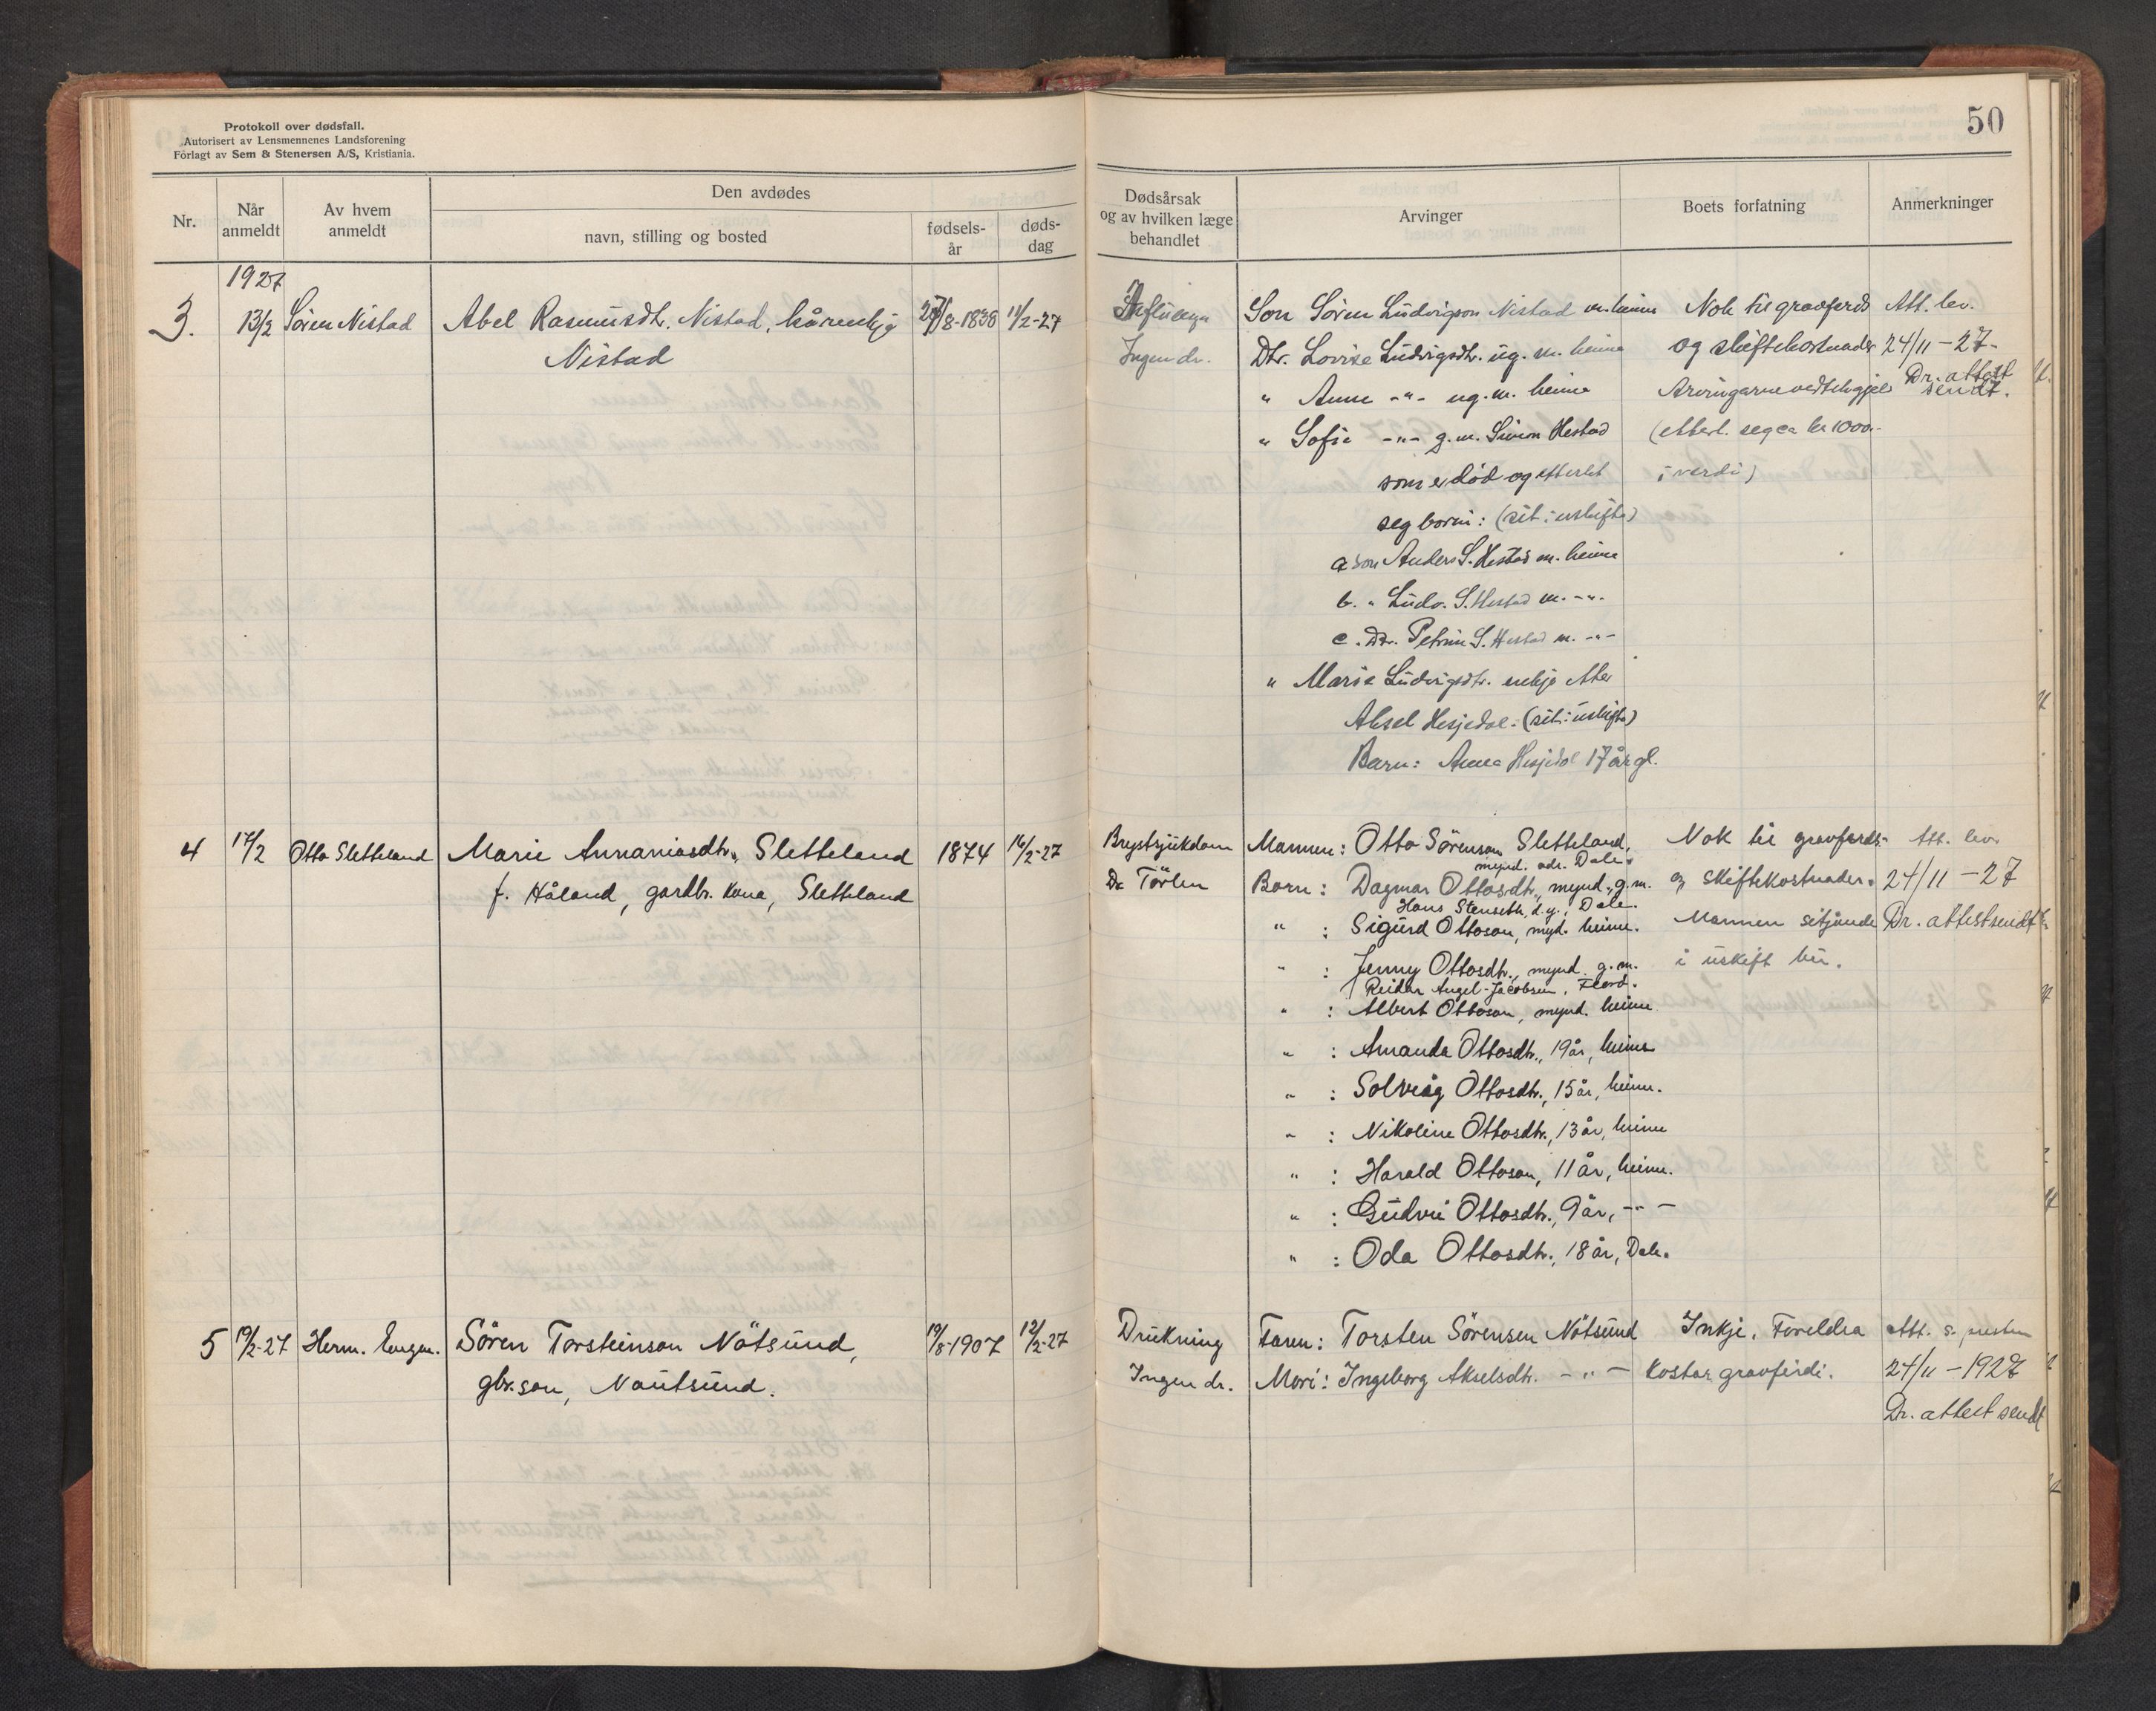 Protokoll over dødsfall.
Autorisert av Lensmennenes Landsforening
Forlagt av Sem & Stenersen A/S, Kristiania.
50
Nr.
Når anmeldt
Av hvem anmeldt
Den avdødes
navn, stilling og bosted
fødsels-år
døds-dag
Dødsårsak og av hvilken læge behandlet
Arvinger
Boets forfatning
Anmerkninger
1927
3. 13/2 Sören Nistad Abel Rasmusdtr. Nistad, kårenkja 27/8-1838 11/2-27
Nistad
Influensa
Ingen dr.
Son Sören Ludvigson Nistad m. heime
Dtr. Lovise Ludvigsdtr. ug. m. heime
" Anne -"- ug. m. heime
" Sofie -"- g.m. Simon Hestad
som er död og etterlet
seg born: (sit i uskifte)
a son Anders S. Hestad m. heime
b. " Ludv. S. Hestad m. -"-
c. Dtr. Petrine S. Hestad m. -"-
" Marie Ludvigsdtr. enkja etter
Aksel Hesjedal. (sit i uskifte)
Barn: Anna Hesjedal 17 år gl.
Nok til gravferds
og skiftekostnader
Arvingarne vedtek gjeld
(etterl. seg ca kr 1000.-
i verdi)
Att. lev.
24/11-27.
Dr. attest
sendt.
4 17/2 Otto Sletteland Marie Annaniasdtr. Sletteland 1874 16/2-27
f. Håland, gardbr. kona, Sletteland
Brystsjukdom
Dr
Mannen: Otto Sörenson Sletteland,
mynd. adr. Dale.
Born: Dagmar Ottosdtr., mynd., g.m.
Hans Stenseth, d.y., Dale.
" : Sigurd Ottoson, myd. heime.
" : Jenny Ottosdtr., mynd. g.m.
Reidar Angel-Jacobsen, Florö.
" : Albert Ottoson, mynd. heime
" : Amanda Ottosdtr., 19 år, heime
" : Solveig Ottosdtr., 15 år, heime.
" : Nikoline Ottosdtr., 13 år, heime
" : Harald Ottoson, 11 år, heime.
" : Gudrii Ottosdtr., 9 år, -"-
" : Oda Ottosdtr., 18 år, Dale.
Nok til gravferds-
og skiftekostnader.
Mannen sitjande
i uskift bu.
Att. lev.
24/11-27
Dr. attest sendt
5 19/2-27 Herm. Engen. Sören Torsteinson Nötsund, 19/8-1907 12/2-27
gbr.son, Nautsund.
Drukning
Ingen dr.
Faren: Torsten Sörensen Nötsund
Mori: Ingeborg Akselsdtr. -"-
Inkje. Foreldra
kostar gravferdi.
Att. s. presten
24/11-1927
Dr. attest sendt